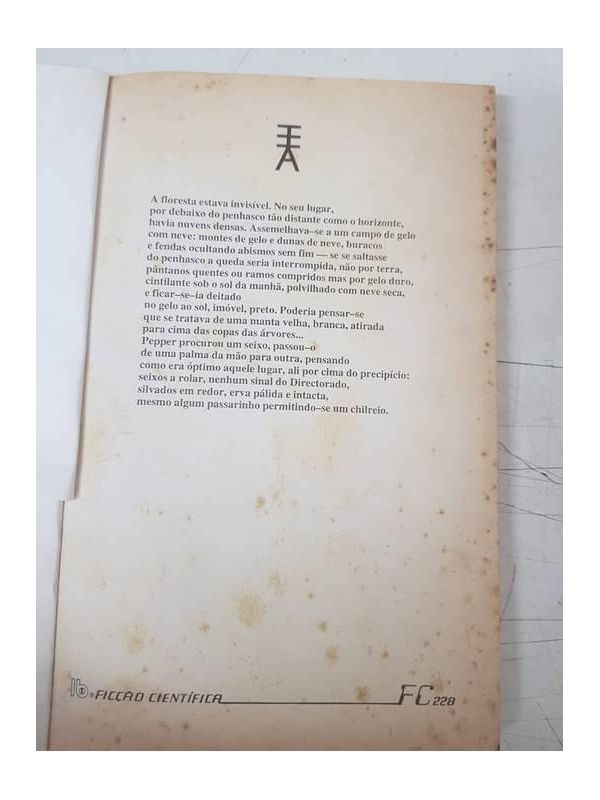 A floresta estava invisível. No seu lugar,
por debaixo do penhasco tão distante como o horizonte,
havia nuvens densas. Assemelhava-se a um campo de gelo
com neve: montes de gelo e dunas de neve, buracos
e fendas ocultando abismos sem fim — se se saltasse
do penhasco a queda seria interrompida, não por terra,
pântanos quentes ou ramos compridos mas por gelo duro,
cintilante sob o sol da manhã, polvilhado com neve seca,
e ficar-se-ia deitado
no gelo ao sol, imóvel, preto. Poderia pensar-se
que se tratava de uma manta velha, branca, atirada
para cima das copas das árvores...
Pepper procurou um seixo, passou-o
de uma palma da mão para outra, pensando
como era óptimo aquele lugar, ali por cima do precipício:
seixos a rolar, nenhum sinal do Directorado,
silvados em redor, erva pálida e intacta,
mesmo algum passarinho permitindo-se um chilreio.
FICÇÃO CIENTÍFICA FC 228